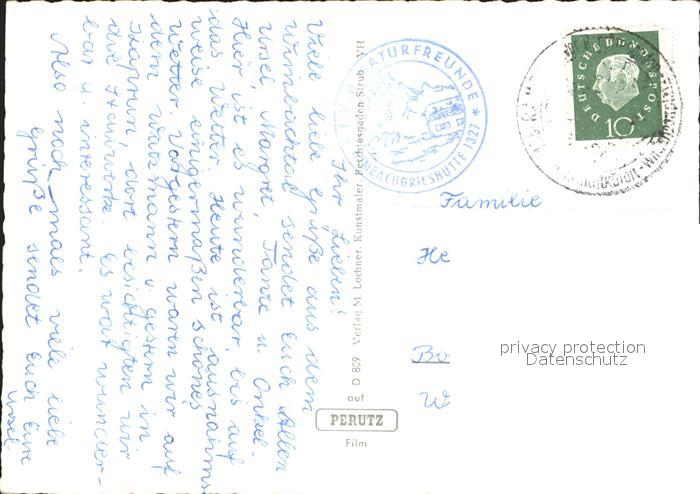 Ihr Lieben!
Viele liebe Grüße aus dem
Wimbachtal sendet Euch Allen
Ursel, Margret, Tante u. Onkel.
Hier ist es wunderbar, bis auf
das Wetter. Heute ist ausnahms
weise einigermaßen schönes
Wetter. Vorgestern waren wir auf
dem Watzmann u. gestern in
Kaprun, dort besichtigten wir
die Stauwerke. Es war wunder-
bar u interessant.
Also noch-mals viele liebe
Grüße sendet Euch Eure
Ursel.
D 809 Verlag M. Lochner, Kunstmaler, Berchtesgaden Strub VH
auf
PERUTZ
Film
NATURFREUNDE
WIMBACHGRIESHÜTTE 1327
DEUTSCHE BUNDESPOST
10
Familie
He
Bo
W
privacy protection
Datenschutz